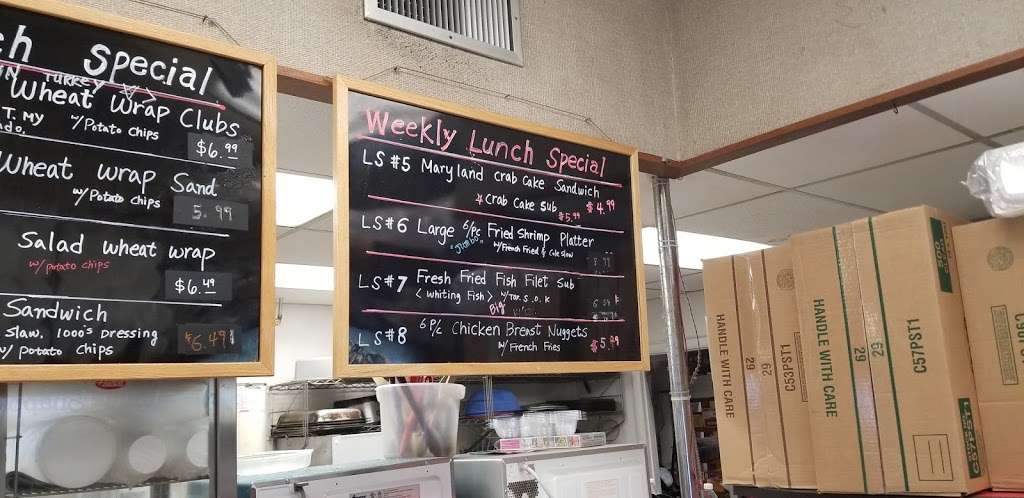 ch Special
IN TURKEY
Wheat Wrap Clubs
T. MY
do,
w/Potato Chips
$6.99
Wheat wrap Sand
w/ Potato chips
5.99
Salad wheat wrap
w/ potato chips
$6.49
Sandwich
Slaw. 1000's Dressing
w/ potato chips
$6.49
Weekly Lunch Special
LS #5 Maryland Crab Cake Sandwich
$4.99
* Crab Cake Sub
$5.99
LS #6 Large 6/Pc Fried Shrimp Platter
"Jumbo" w/ French Fried & Cole Slaw
LS #7 Fresh Fried Fish Filet Sub
< Whiting Fish > w/ Tar. S. O. K
Big
LS #8 6 P/c Chicken Breast Nuggets
w/ French Fries
$5.99
HANDLE WITH CARE
29
29
C53PST1
HANDLE WITH CARE
29
29
C57PST1